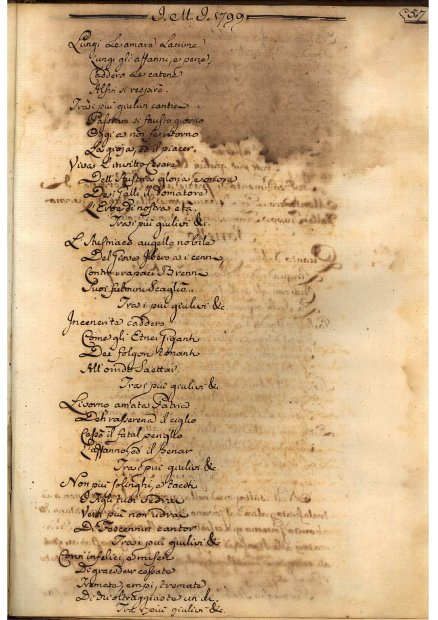 J. M. J. 1799
Lungi le amare Lacrime
Lungi gli affanni, e pene,
Caddero le catene
Alfin si respirò.
Trà i più giulivi cantici
Passiam si fausto giorno
Oggi a noi fe ritorno
La gioja, ed il piacer.
Viva l'invitto Cesare
Dell'Austria gloria, e onore
Dei Galli il Domatore
L'Eroe di nostra età.
Tra i più giulivi &c.
L'Austriaco augello nobile
Del Giove
Contro rapaci Brenni
Suoi fulmini Scagliò.
Tra i più giulivi &c
Inceneriti caddero
Come gli Etnei Giganti
Dei folgori tonanti
All'orrido Saettar.
Tra i più giulivi &c.
Livorno amata Patria
Deh rasserena il ciglio
Cessò il fatal periglio
L'affanno, ed il penar
Tra i più giulivi &c.
Non più solinghi, e taciti
I Figli tuoi vedrai
Versi più non udrai
Di Fescennin cantor
Tra i più giulivi &c.
Così infelici, e miseri
Di gracidar cessate
Tremate, empi, tremate
Di chi oltraggiaste un dì.
Tra i più giulivi &c.